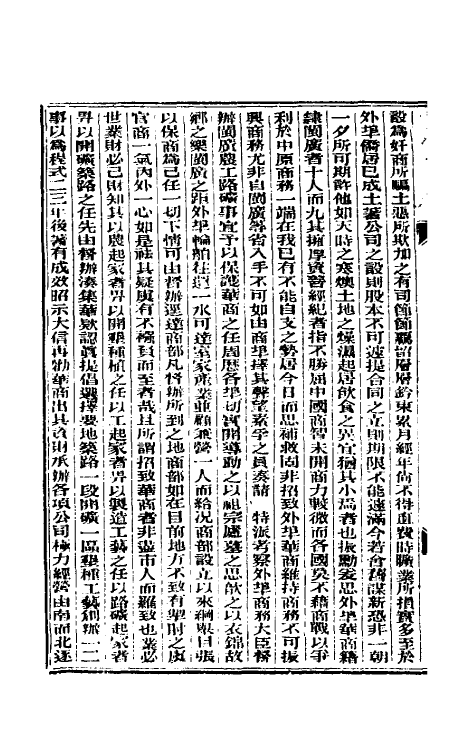 設為奸商所騙土惡所欺加之有司節節羈留層層鈐束累月經年尚不得直費時曠業所損實多至於
外埠僑居已成土著公司之設則股本不可速提合同之立則期限不能遽滿今若舍舊謀新恐非一朝
一夕所可期許他如天時之寒燠土地之燥濕起居飲食之異宜猶其小焉者也振勳委思外埠華商籍
隸閩廣者十人而九其擁厚資善經紀者指不勝屈中國商智未開商力較微而各國莫不藉商戰以爭
利於中原商務一端在我已有不能自支之勢居今日而思補救固非招致外埠華商維持商務不可振
興商務尤非自閩廣等省入手不可如由商埠擇其聲望素孚之員奏請 特派考察外埠商務大臣督
辦閩廣農工路礦事宜予以保護華商之任周歷各埠切實開導動之以祖宗廬墓之思歆之以衣錦故
鄉之樂閩廣之距外埠輪舶往還一水可達室家產業並顧兼營一人而給況商部設立以來綱舉目張
以保商為己任一切下情可由督辦逕達商部凡督辦所到之地商部如在目前地方不致有掣肘之虞
官商一氣內外一心如是社其疑慮有不襁負而至者哉且所謂招致華商者非盡市人而羅致也業必
世業財必己財知其以農起家者畀以開墾種植之任以工起家者畀以製造工藝之任以路礦起家者
畀以開礦築路之任先由督辦湊集華款認真提倡選擇要地築路一段開礦一區墾種工藝創辦一二
事以為程式二三年後著有成效昭示大信再勸華商出其資財承辦各項公司極力經營由南而北逐